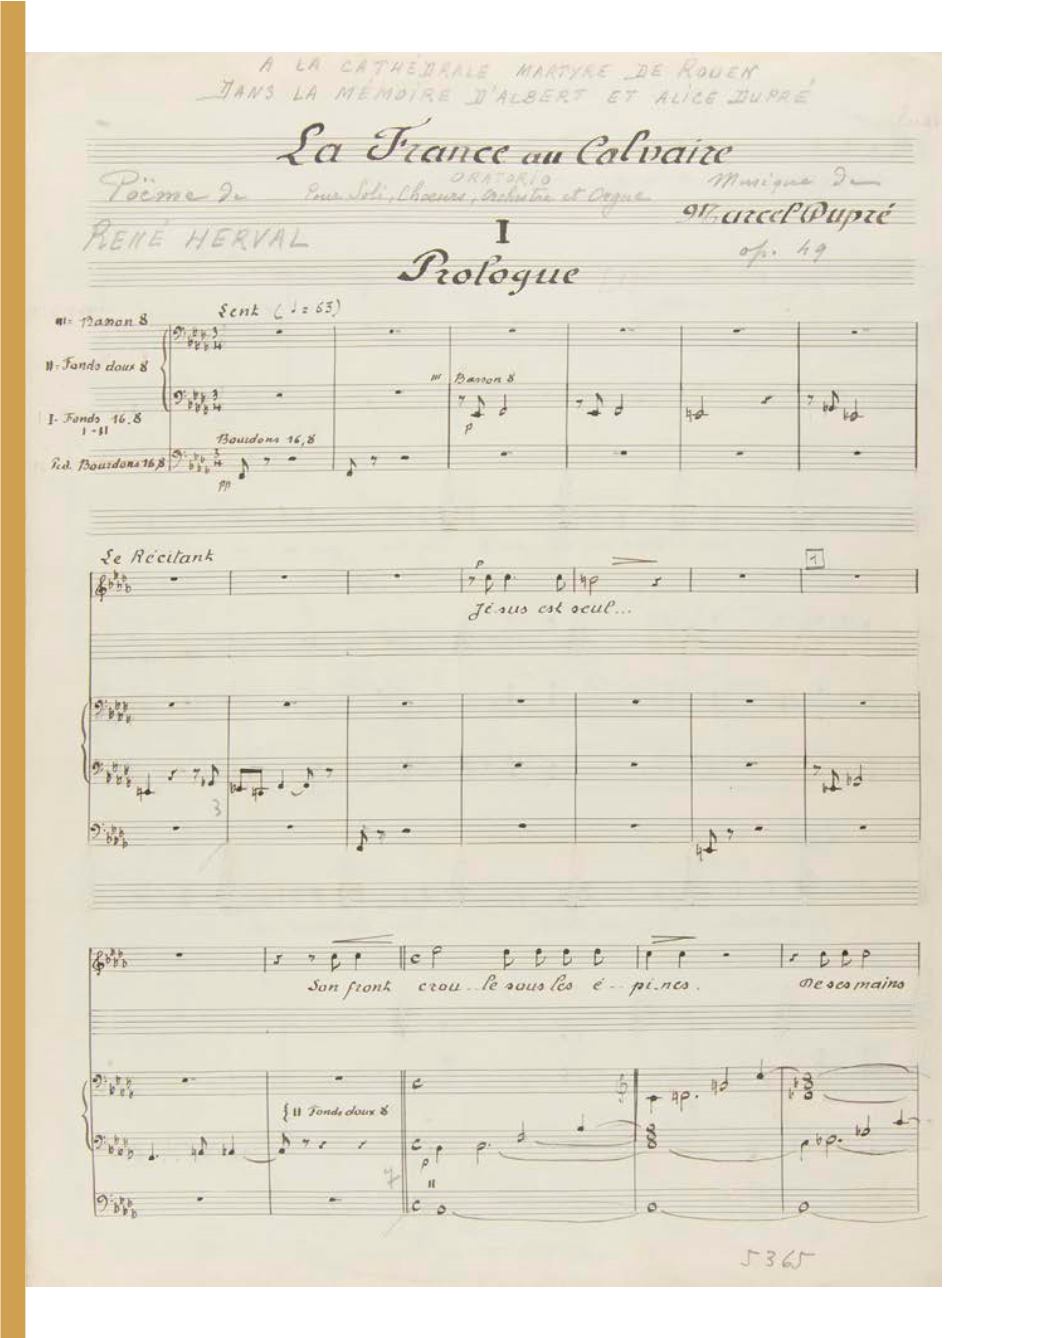 A LA CATHÉDRALE MARTYRE DE ROUEN
DANS LA MÉMOIRE D'ALBERT ET ALICE DUPRÉ
La France au Calvaire
ORATORIO
Poëme de Pour Soli, Choeurs, Orchestre et Orgue Musique de
RENÉ HERVAL Marcel Dupré
I op. 49
Prologue
Lent (♩ = 63)
III = Basson 8
II = Fonds doux 8
III Basson 8
I - Fonds 16.8
I - II
p
Bourdons 16,8
Péd. Bourdons 16,8
pp
Le Récitant
p
1
Jésus est seul...
3
Son front crou..le sous les é-pi-nes. De ses mains
{ II Fonds doux 8
7
p
II
5365